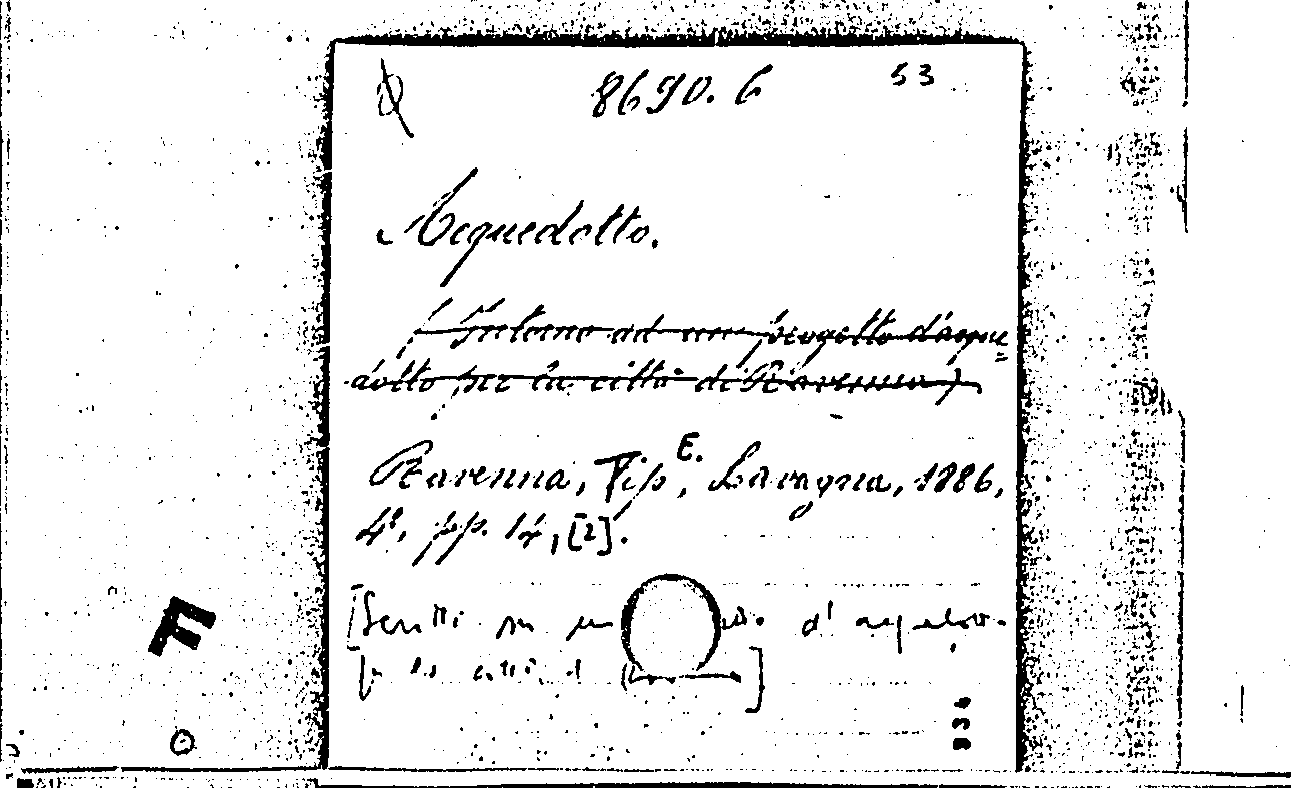 8690. 6 53
Acquedotto.
(Intorno ad un progetto d'acque=
dotto per la città di Ravenna)
Ravenna, Tip. E. Lavagna, 1886,
4°, pp. 14, [2].
[Scritti su un d'
per la città di Ravenna]
F
936